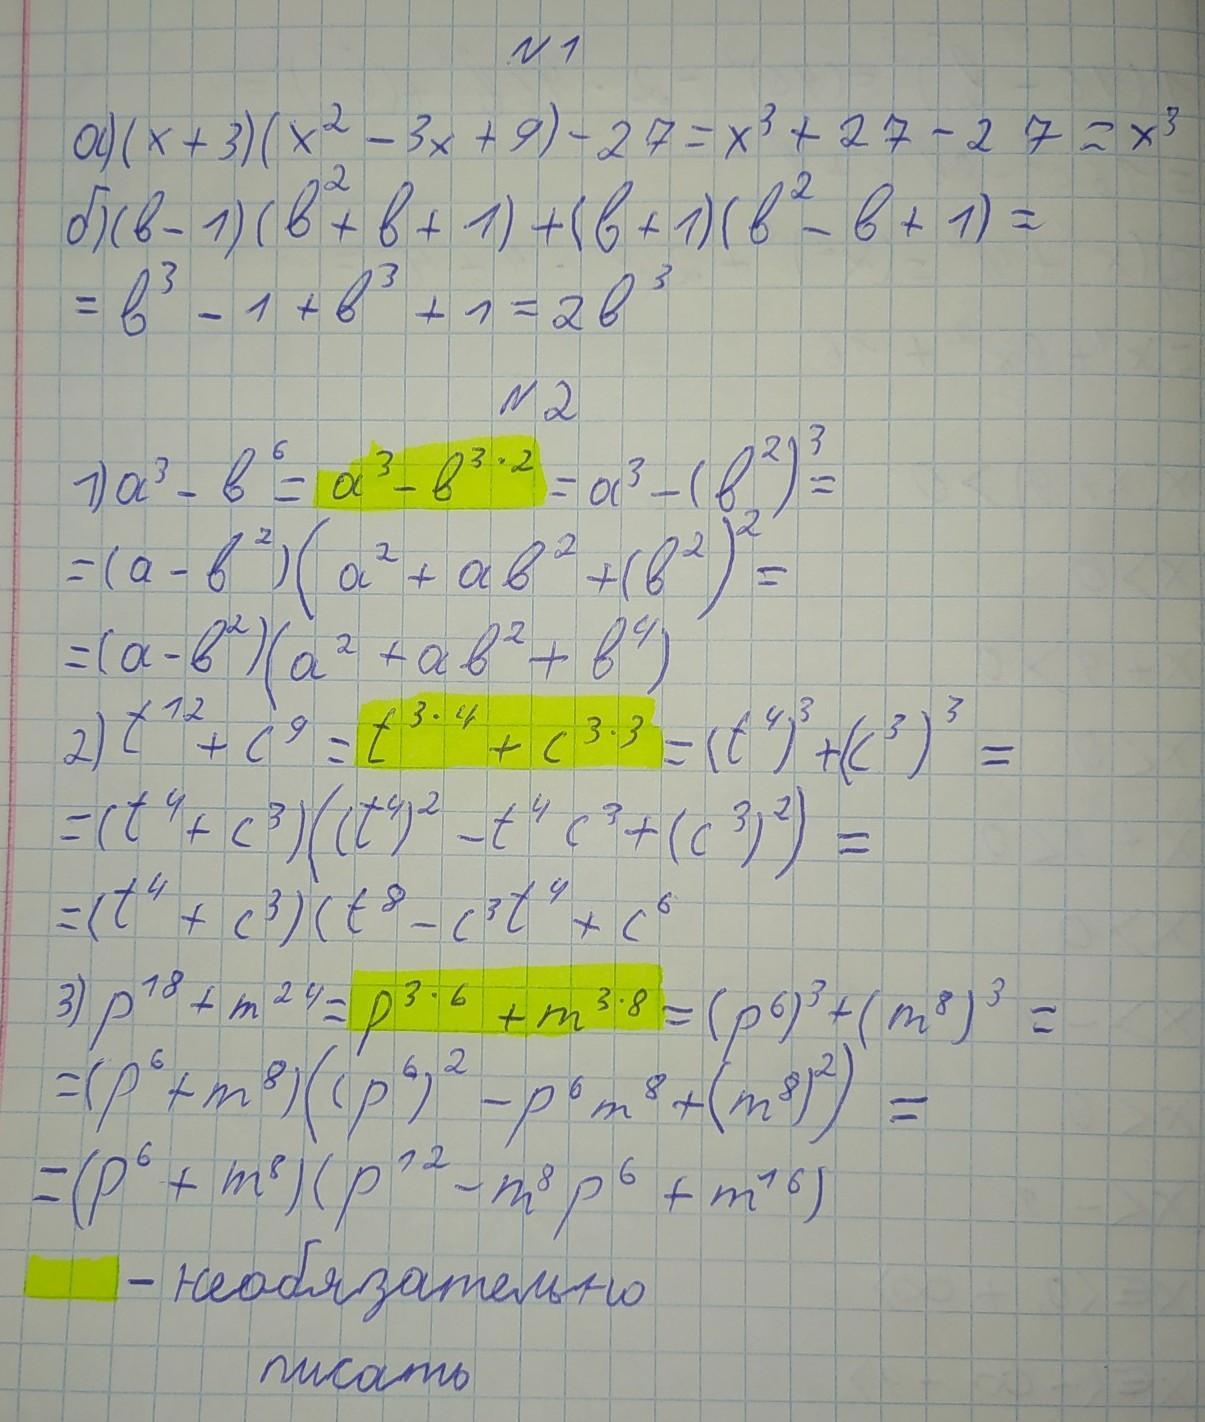 N1
а)(x+3)(x² - 3x + 9) - 27 = x³ + 27 - 27 = x³
б)(в - 1)(в² + в + 1) + (в + 1)(в² - в + 1) =
= в³ - 1 + в³ + 1 = 2в³
N2
1) a³ - в⁶ = a³ - в³·² = a³ - (в²)³ =
= (a - в²)(a² + aв² + (в²)² =
= (a - в²)(a² + aв² + в⁴)
2) t¹² + c⁹ = t³·⁴ + c³·³ = (t⁴)³ + (c³)³ =
= (t⁴ + c³)((t⁴)² - t⁴c³ + (c³)²) =
= (t⁴ + c³)(t⁸ - c³t⁴ + c⁶
3) p¹⁸ + m²⁴ = p³·⁶ + m³·⁸ = (p⁶)³ + (m⁸)³ =
= (p⁶ + m⁸)((p⁶)² - p⁶m⁸ + (m⁸)²) =
= (p⁶ + m⁸)(p¹² - m⁸p⁶ + m¹⁶)
- необязательно
писать